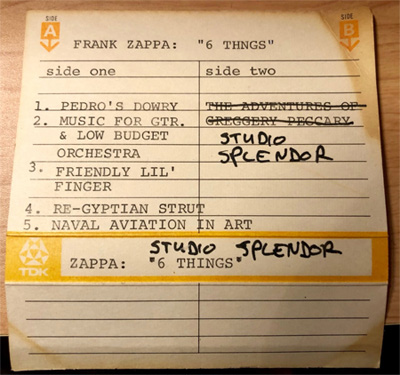 SIDE
A
FRANK ZAPPA: "6 THNGS"
SIDE
B
side one
side two
1. PEDRO'S DOWRY
2. MUSIC FOR GTR.
& LOW BUDGET
ORCHESTRA
3. FRIENDLY LIL'
FINGER
4. RE-GYPTIAN STRUT
5. NAVAL AVIATION IN ART
THE ADVENTURES OF
GREGGERY PECCARY
STUDIO
SPLENDOR
STUDIO SPLENDOR
TDK
ZAPPA: "6 THINGS"